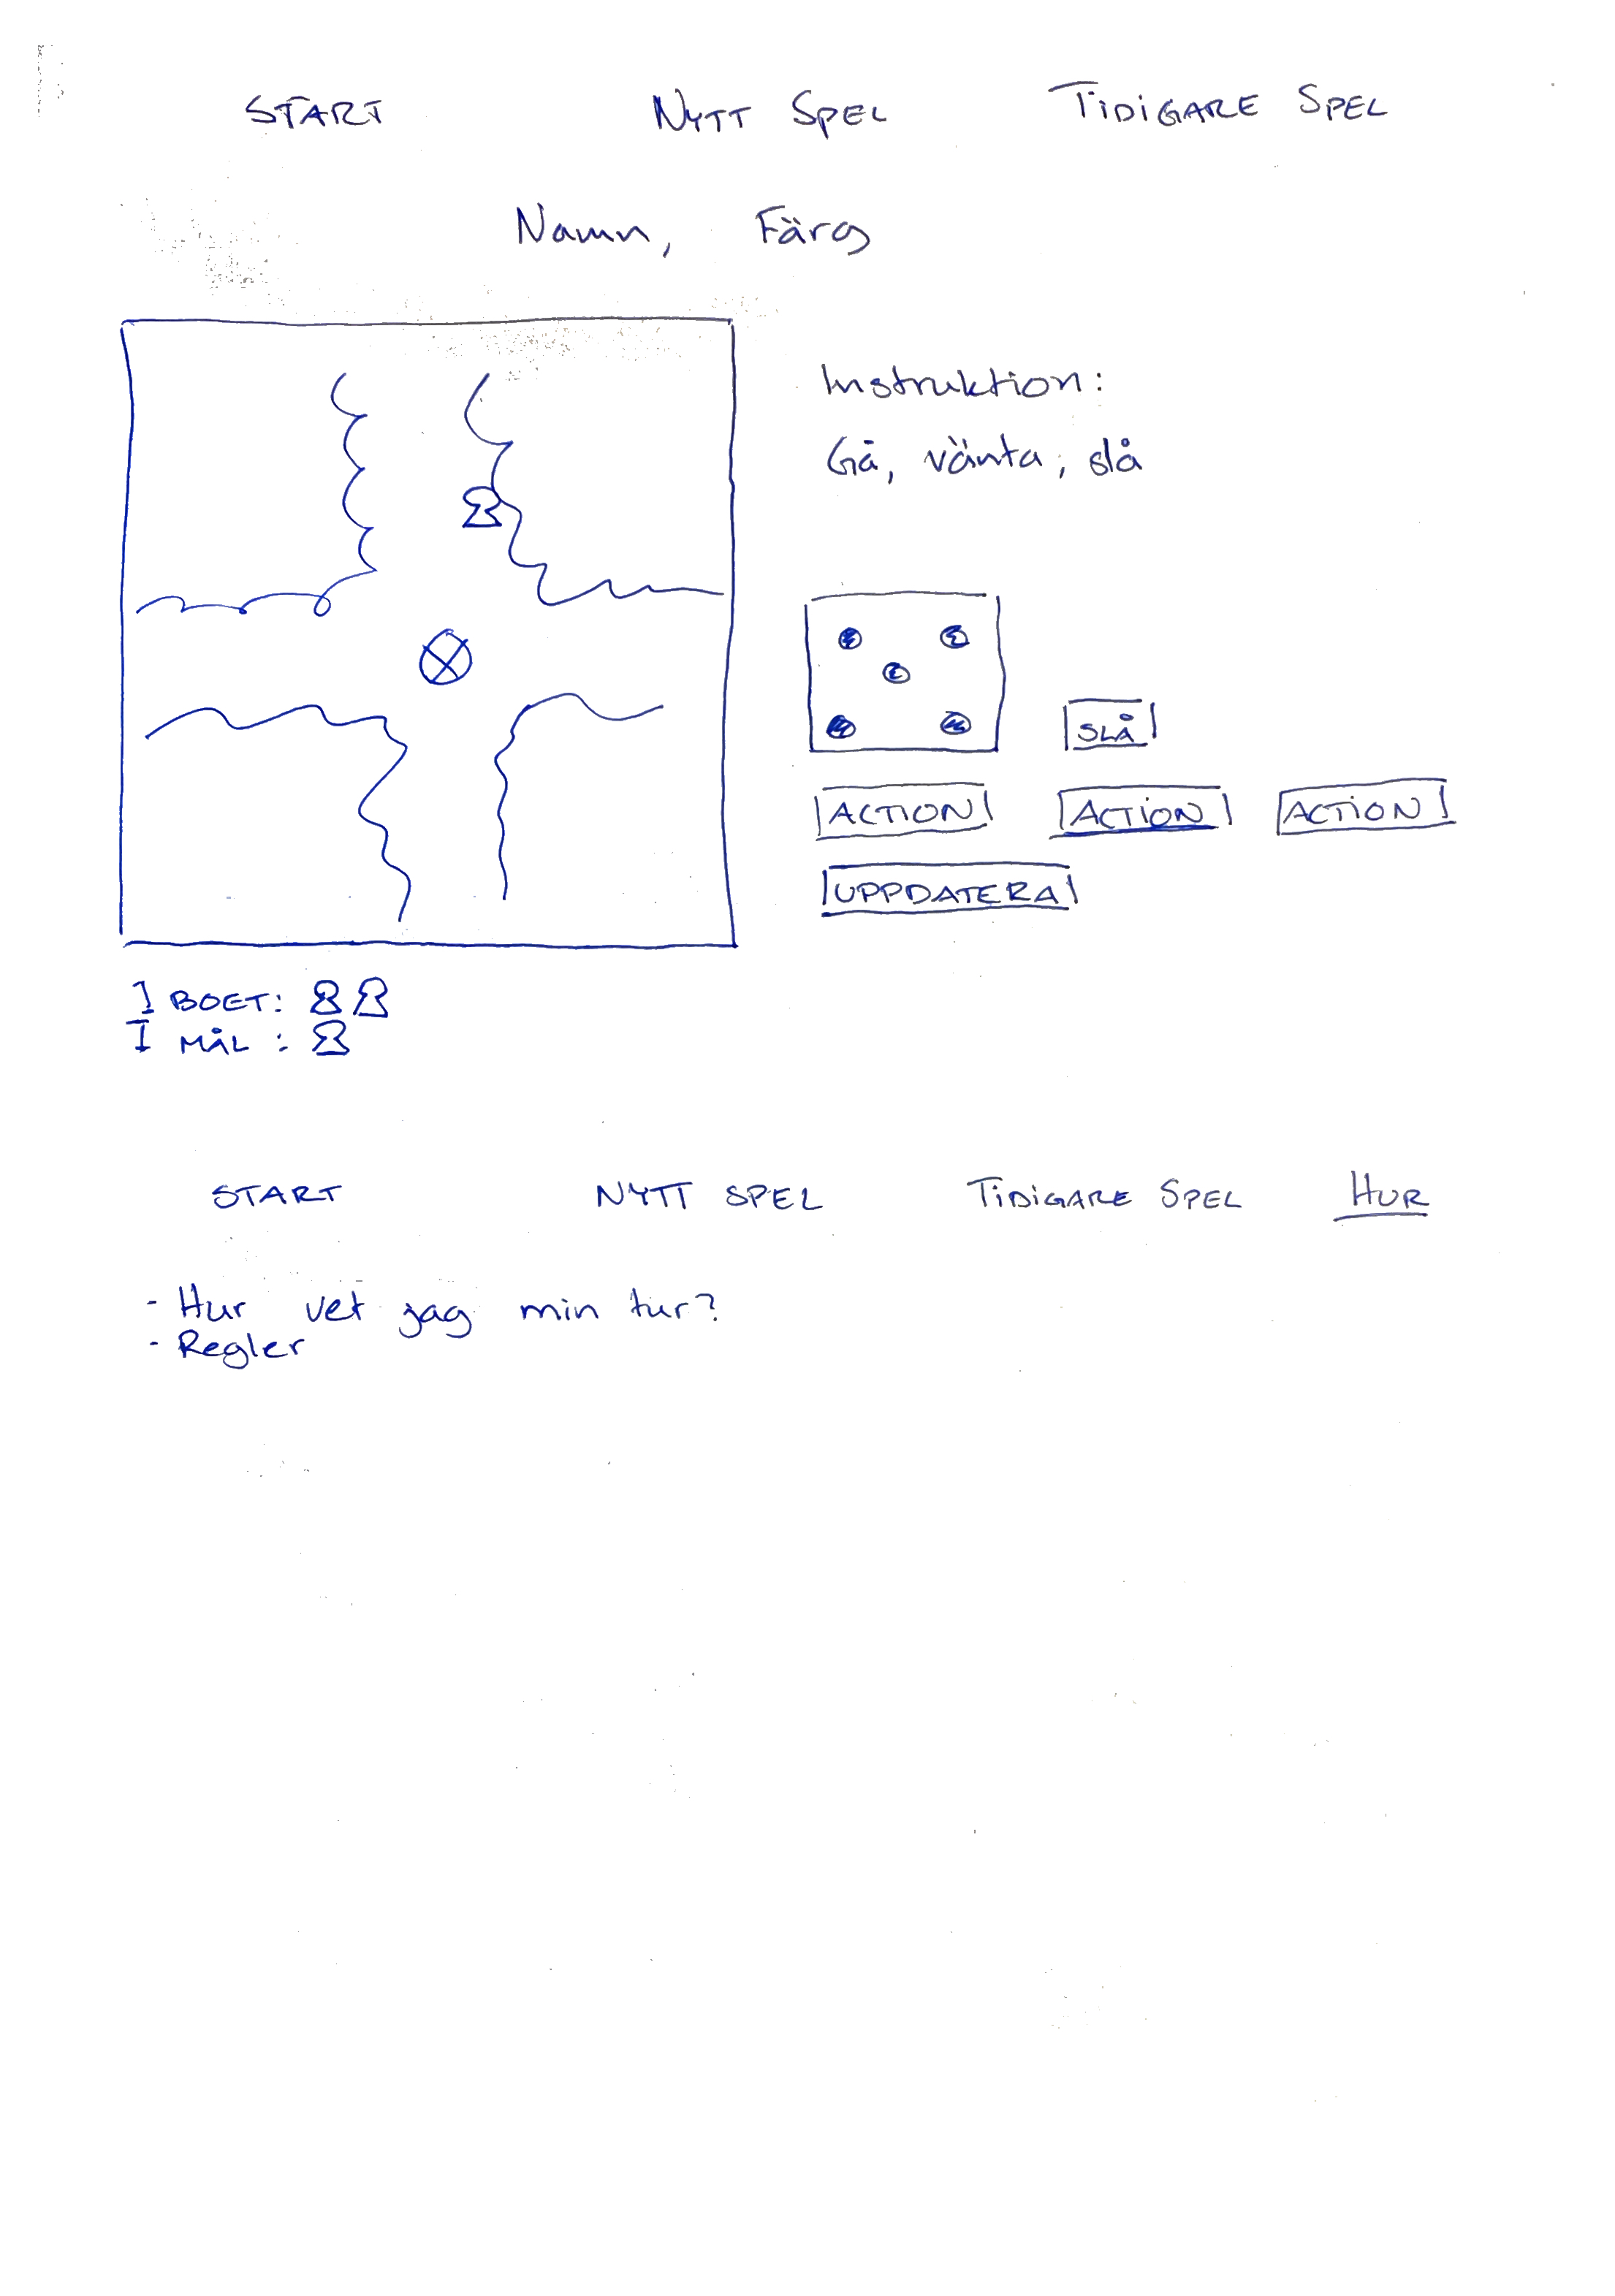 START NYTT SPEL TIDIGARE SPEL
Namn, Färg
Instruktion:
Gå, vänta, slå
SLÅ
ACTION ACTION ACTION
UPPDATERA
I BOET:
I MÅL :
START NYTT SPEL TIDIGARE SPEL HUR
- Hur vet jag min tur?
- Regler